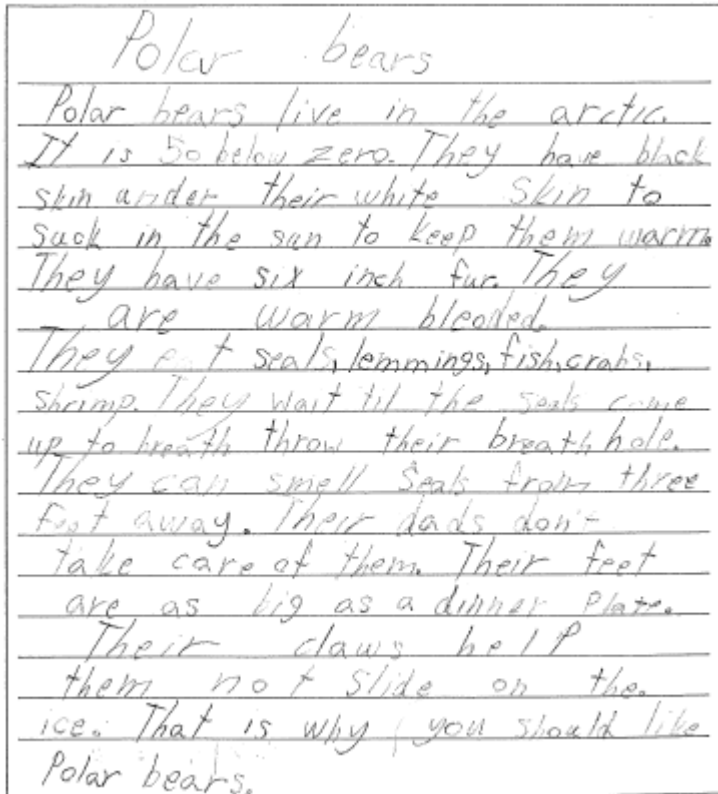 Polar bears
Polar bears live in the arctic.
It is 50 below zero. They have black
skin under their white skin to
suck in the sun to keep them warm.
They have six inch fur. They
are warm bleoded.
They eat seals, lemmings, fish, crabs,
shrimp. They wait til the seals come
up to breath throw their breath hole.
They can smell seals from three
foot away. Their dads don't
take care of them. Their feet
are as big as a dinner plate.
Their claws help
them not slide on the.
ice. That is why you should like
Polar bears.